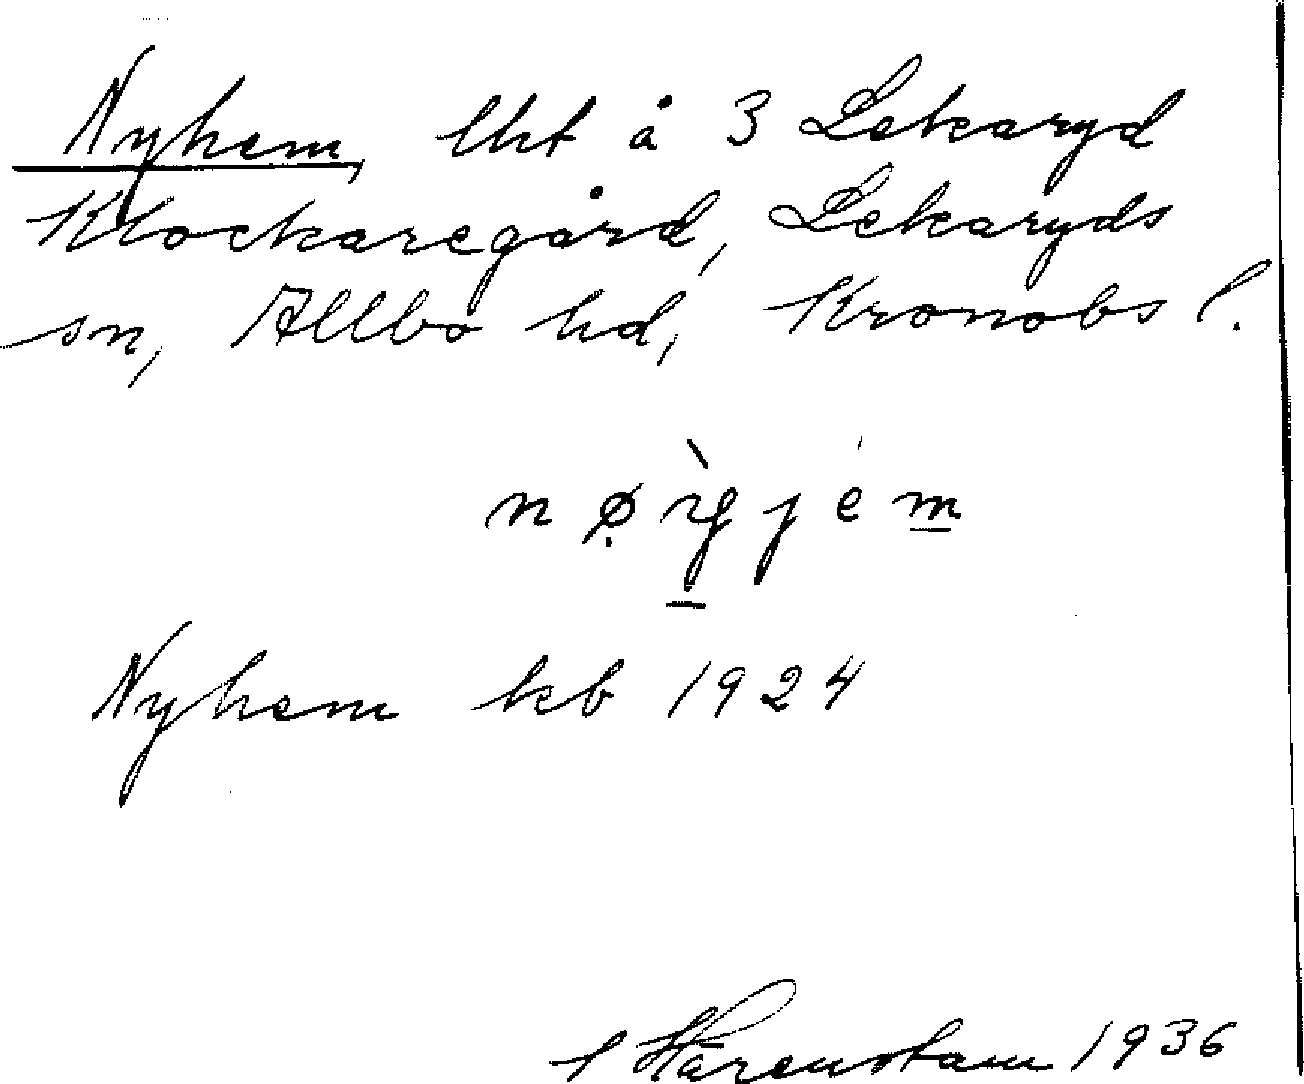 Nyhem, lht å 3 Lekaryd
Klockaregård, Lekaryds
sn, Allbo hd, Kronobs l.
Nyhem kb 1924
Härenstam 1936